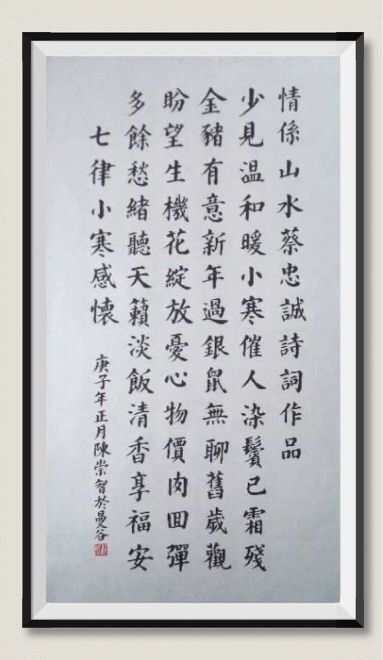 情係山水蔡忠誠詩詞作品
少見温和暖小寒催人染鬢已霜殘
金豬有意新年過銀鼠無聊舊歲觀
盼望生機花綻放憂心物價肉囬彈
多餘愁緒聽天籟淡飯清香享福安
七律小寒感懷
庚子年正月陳崇智於曼谷